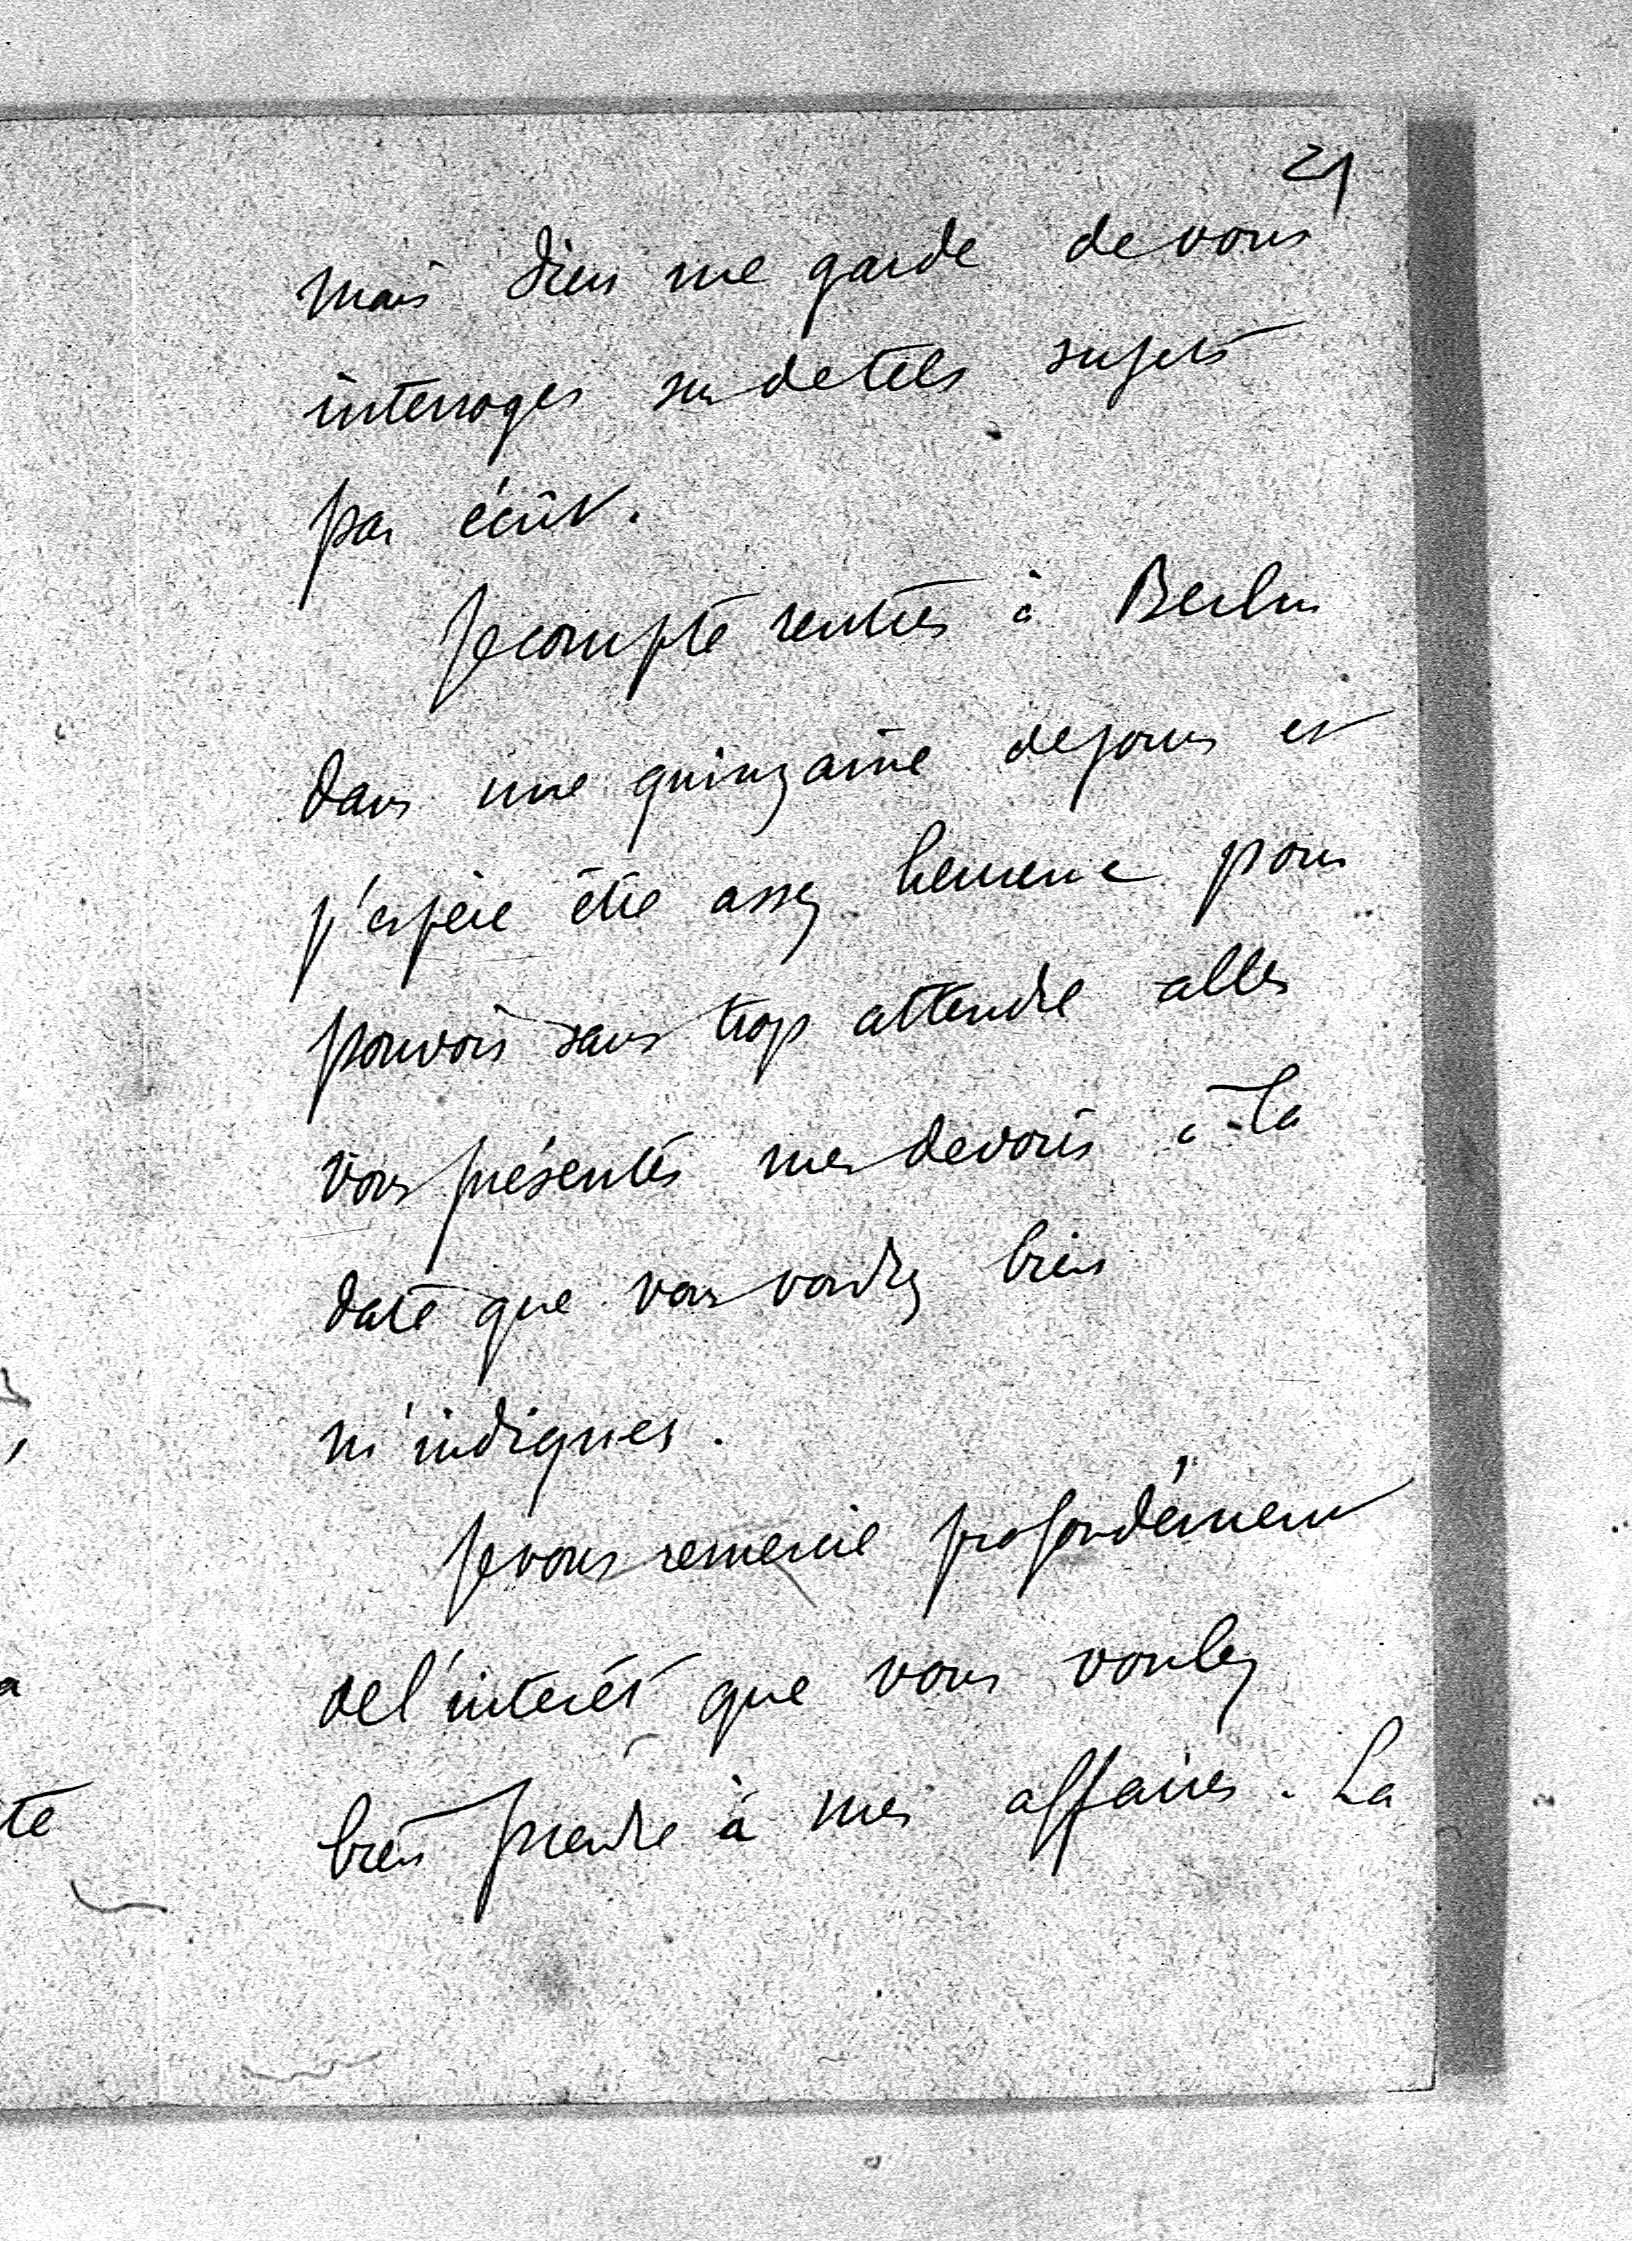 21
mais Dieu me garde de vous
interroger sur de tels sujets
par écrit.
Je compte rentrer à Berlin
dans une quinzaine de jours et
j'espère être assez heureux pour
pouvoir sans trop attendre aller
vous présenter mes devoirs à la
date que vous voudrez bien
m'indiquer.
Je vous remercie profondément
de l'intérêt que vous voulez
bien prendre à mes affaires. La